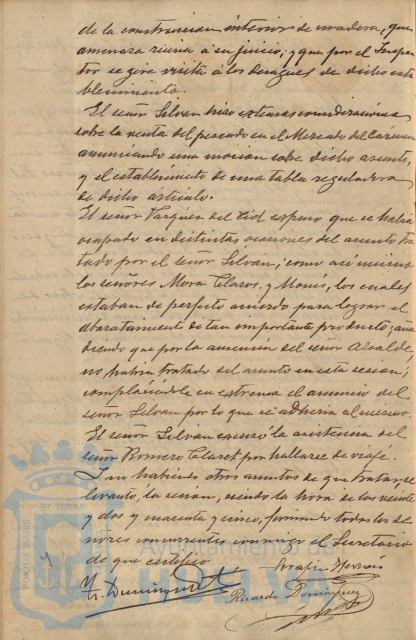 de la construccion interior de madera, que
amenaza ruina á su juicio, y que por el Inspec-
tor se gire visita á los desagües de dicho esta-
blecimiento.
El señor Silvan hizo extensas consideraciones
sobre la venta del pescado en el Mercado del Carmen
anunciando una mocion sobre dicho asunto,
y el establecimiento de una tabla reguladora
de dicho artículo.
El señor Vazquez del Cid expuso que se habia
ocupado en distintas ocasiones del asunto tra-
tado por el señor Silván, como asi mismo
los señores Mora Claros, y los cuales
estaban de perfecto acuerdo para lograr el
abaratamiento de tan importante producto; aña-
diendo que por la ausencia del señor Alcalde,
no habia tratado del asunto en esta sesion;
complaciéndole en extremo el anuncio del
señor Silvan por lo que se adheria al mismo.
El señor Silván excusó la asistencia del
señor Romero Claret por hallarse de viaje.
I no habiendo otros asuntos de que tratar, se
levantó la sesion, siendo la hora de las veinte
y dos y cuarenta y cinco, firmando todos los se-
ñores concurrentes conmigo el Secretario
de que certifico
Ricardo Dominguez
PORTUS MARIS ET TERRAE
Ayuntamiento de
HUELVA